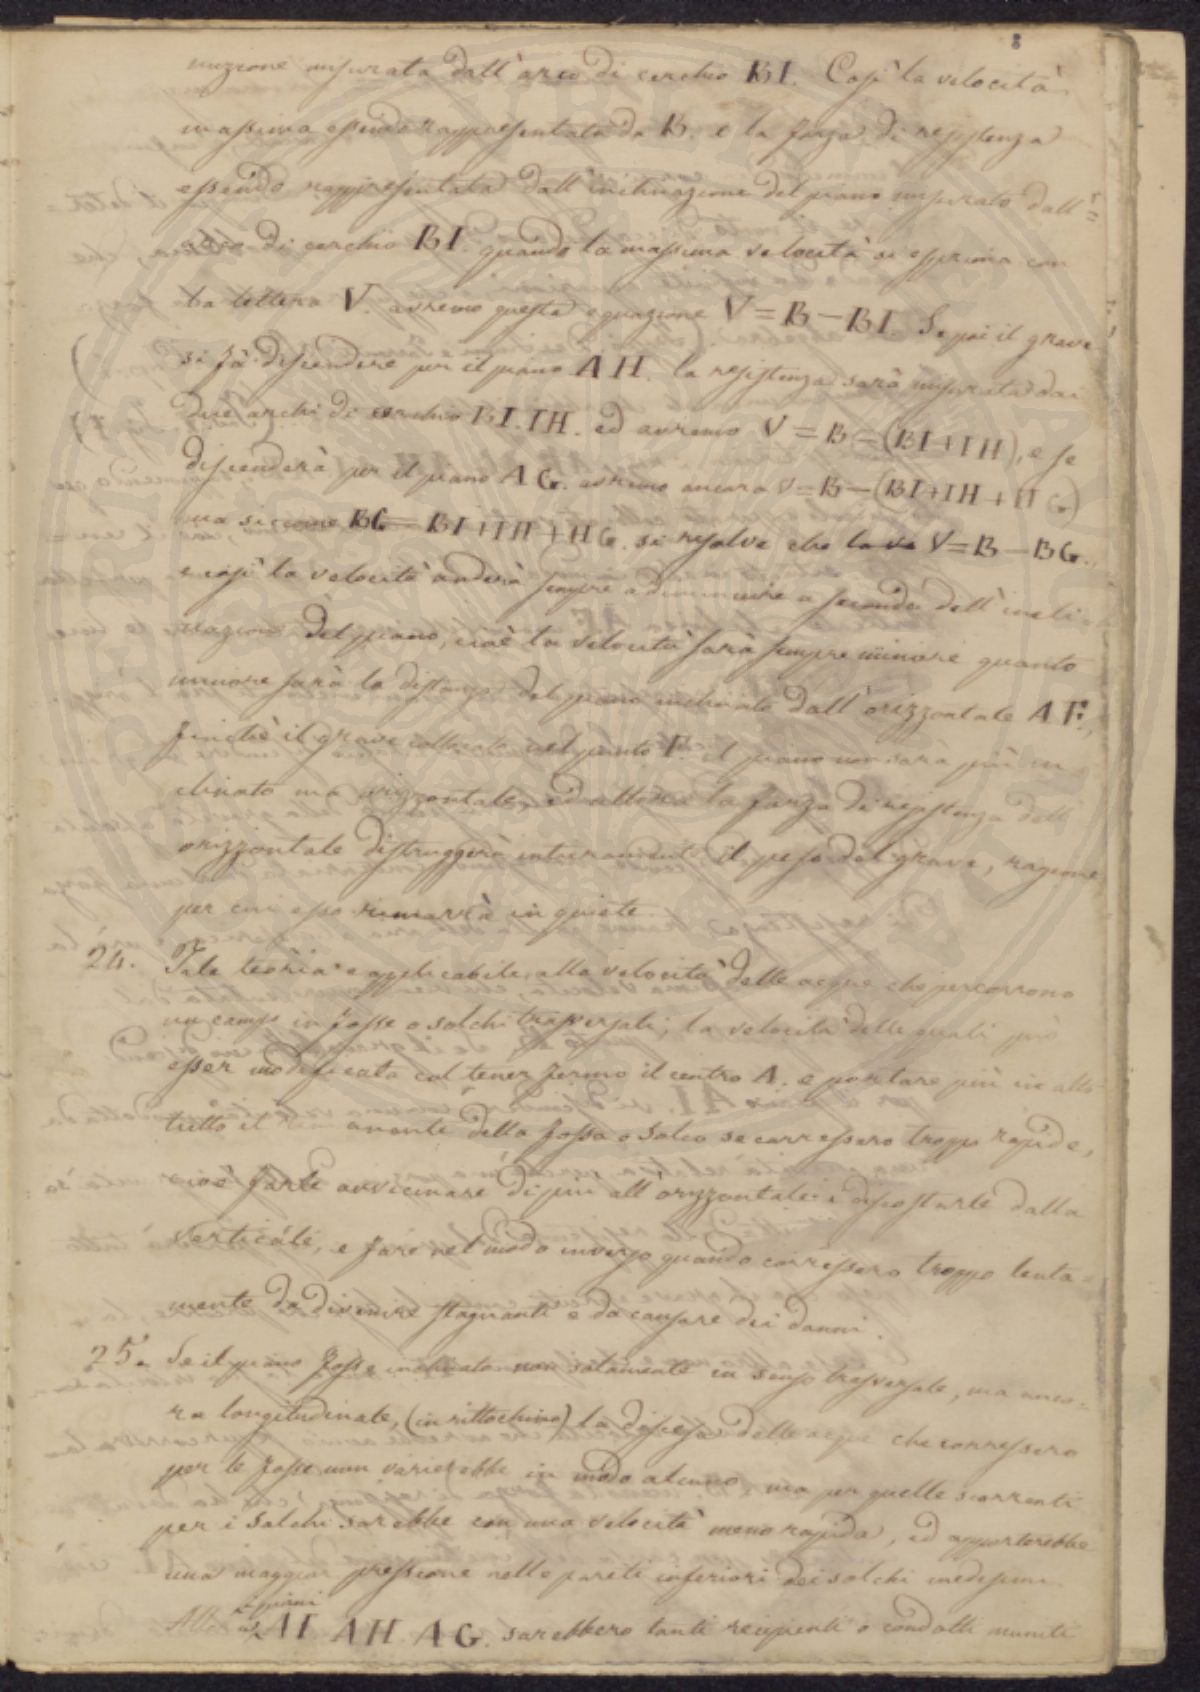 8
nuzione misurata dall'arco di cerchio BI. Così la velocità
massima essendo rappresentata da B. e la forza di resistenza
essendo rappresentata dall'inclinazione del piano misurato dall'=
arco di cerchio BI. quando la massima velocità si esprima con
la lettera V. avremo questa equazione V = B — BI. Se poi il grave
si fà discendere per il piano AH. la resistenza sarà misurata dai
due archi di cerchio BI. IH. ed avremo V = B — (BI + IH), e se
discenderà per il piano AG. avremo ancora V = B — (BI + IH + HG)
ma siccome BG = BI + IH + HG. si resolve che la ve V = B — BG.
e così la velocità anderà sempre a diminuire a seconda dell'incli
nazione del piano, cioè la velocità sarà sempre minore quanto
minore sarà la distanza del piano inclinato dall'orizzontale AF.,
finchè il grave collocato nel punto F. il piano non sarà più in
clinato ma orizzontale, ed allora la forza di resistenza dell'
orizzontale distruggerà interamente il peso del grave, ragione
per cui esso rimarrà in quiete.
24. Tale teoria è applicabile alla velocità delle acque che percorrono
un campo in fosse o solchi trasversali; la velocità delle quali può
esser modificata col tener fermo il centro A. e portare più in alto
tutto il rimanente della fossa o solco se corressero troppo rapide,
cioè farle avvicinare di più all'orizzontale e discostarle dalla
verticale, e fare nel modo inverso quando corressero troppo lenta=
mente da divenire stagnanti e da causare dei danni.
25. Se il piano fosse inclinato non solamente in senso trasversale, ma anco=
ra longitudinale, (in rittochino) la discesa delle acque che corressero
per le fosse non varierebbe in modo alcuno, ma per quelle scorrenti
per i solchi sarebbe con una velocità meno rapida, ed apporterebbe
una maggior pressione nelle pareti inferiori dei solchi medesimi.
i piani
AI AH AG. sarebbero tanti recipienti o condotti muniti